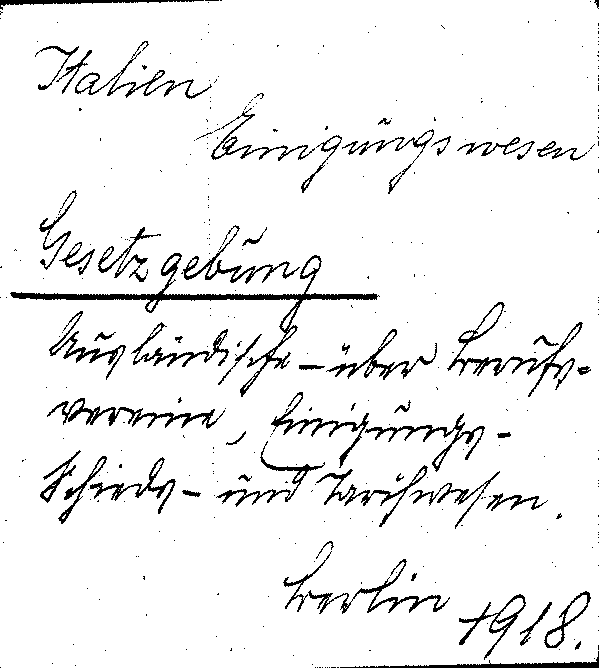 Italien
Einigungswesen
Gesetzgebung
Ausländische – über Berufs-
vereine, Einigungs-
Schieds- und Tarifwesen.
Berlin 1918.